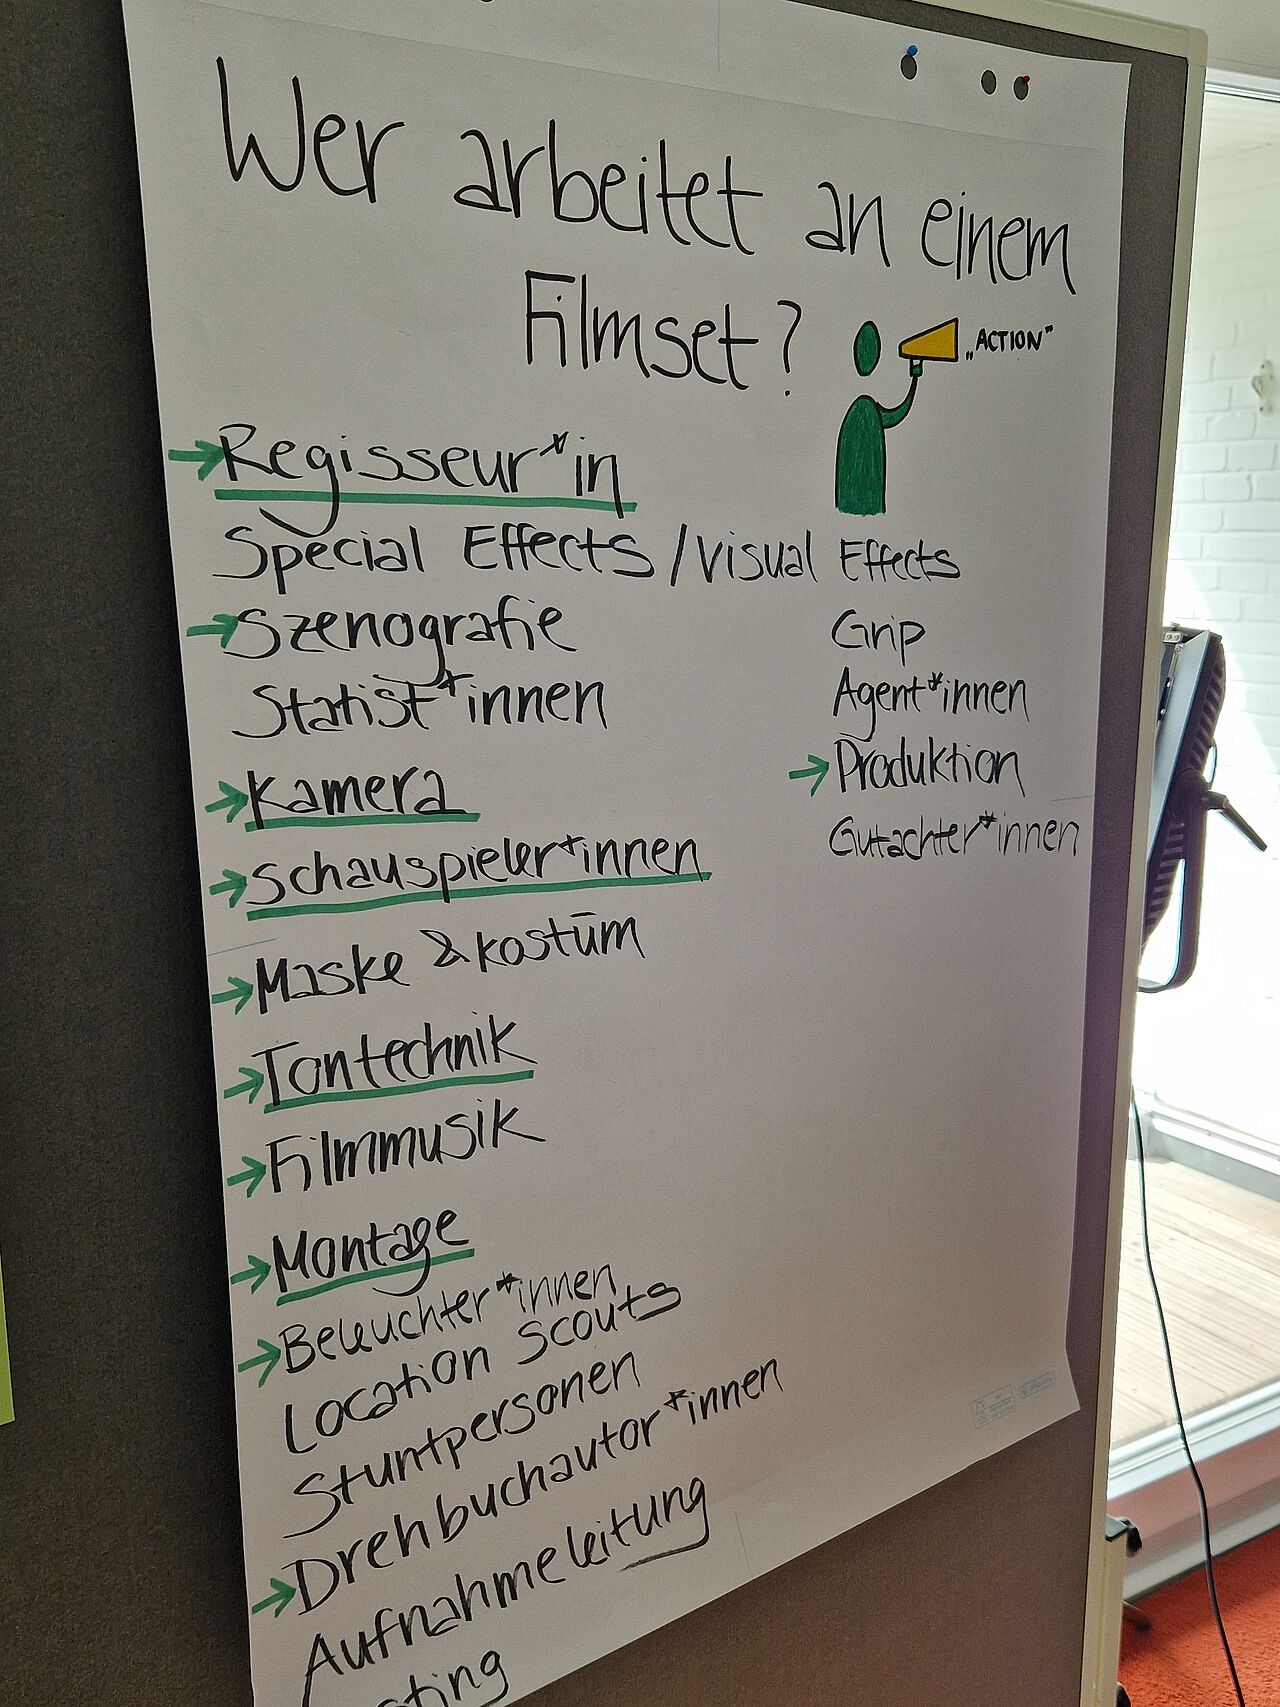 Wer arbeitet an einem
Filmset?
„ACTION"
→Regisseur*in
Special Effects / Visual Effects
→Szenografie
Statist*innen
→Kamera
→Schauspieler*innen
→Maske & Kostüm
→Tontechnik
→Filmmusik
→Montage
→Beleuchter*innen
Location Scouts
Stuntpersonen
→Drehbuchautor*innen
Aufnahmeleitung
Grip
Agent*innen
→Produktion
Gutachter*innen